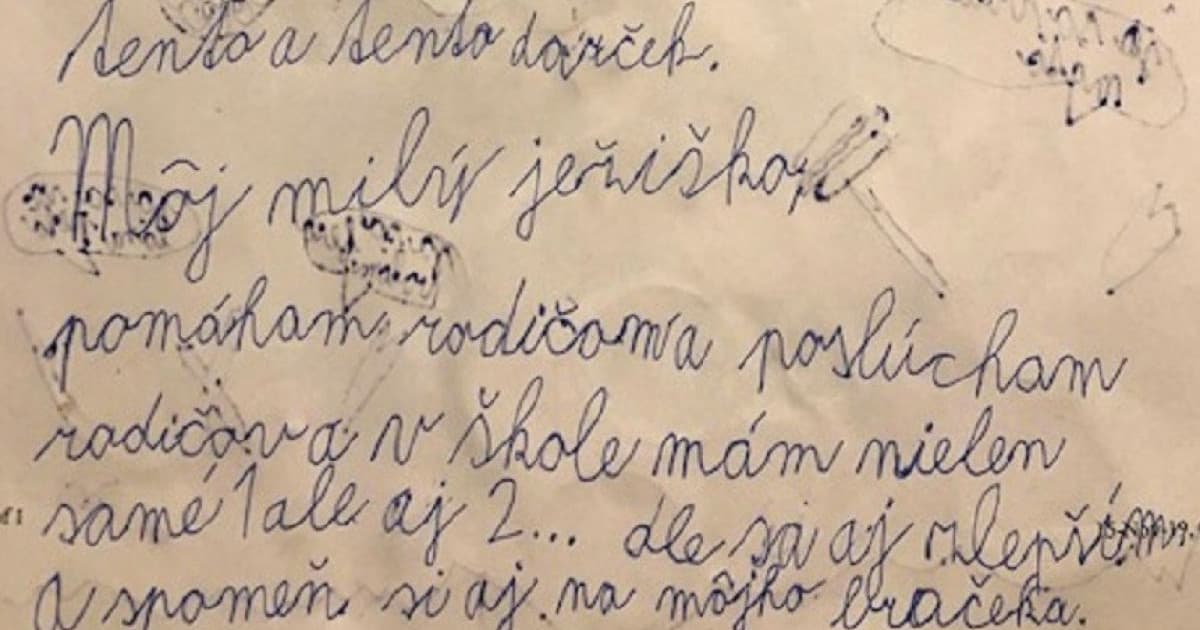 tento a tento darček.
Môj milý ježiško,
pomáham rodičom a poslúcham
rodičov a v škole mám nielen
samé 1 ale aj 2... ale sa aj zlepším
a spomeň si aj na môjho bračeka.